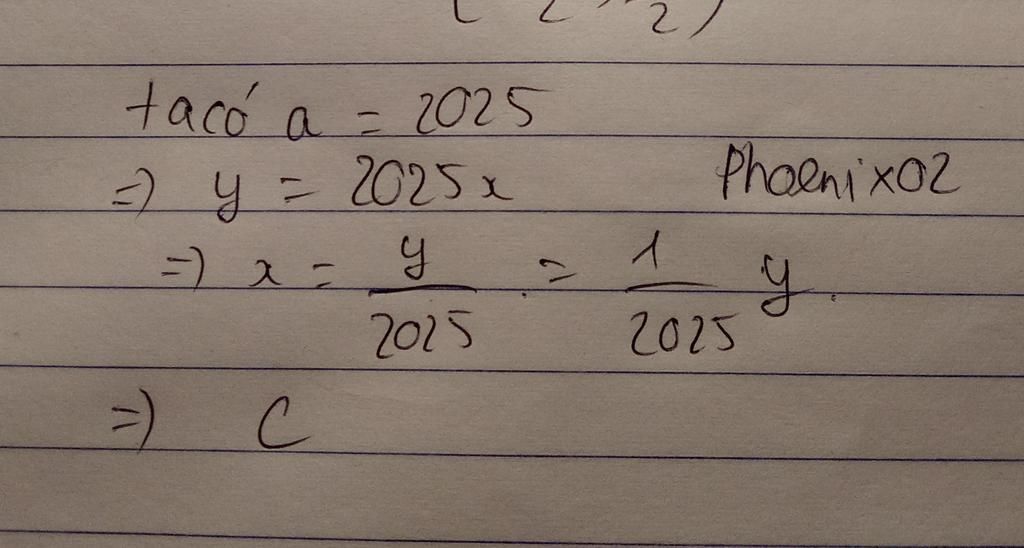 2 2)
tacó a = 2025
=) y = 2025x
Phoenix02
=) x = y/2025 = 1/2025 y.
=) C